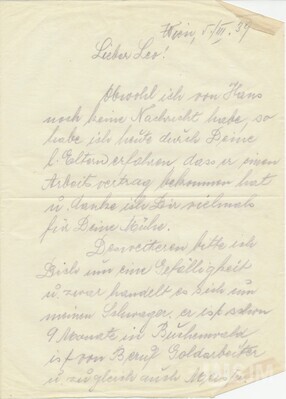 Wien, 5/III. 39
Lieber Leo!
Obwohl ich von Hans
noch keine Nachricht habe, so
habe ich heute durch Deine
l. Eltern erfahren das er einen
Arbeitsvertrag bekommen hat
u. danke ich Dir vielmals
für Deine Mühe.
Desweiteren bitte ich
Dich um eine Gefälligkeit
u. zwar handelt es sich um
meinen Schwager, er ist schon
9 Monate in Buchenwald
ist von Beruf Goldarbeiter
u. zugleich auch